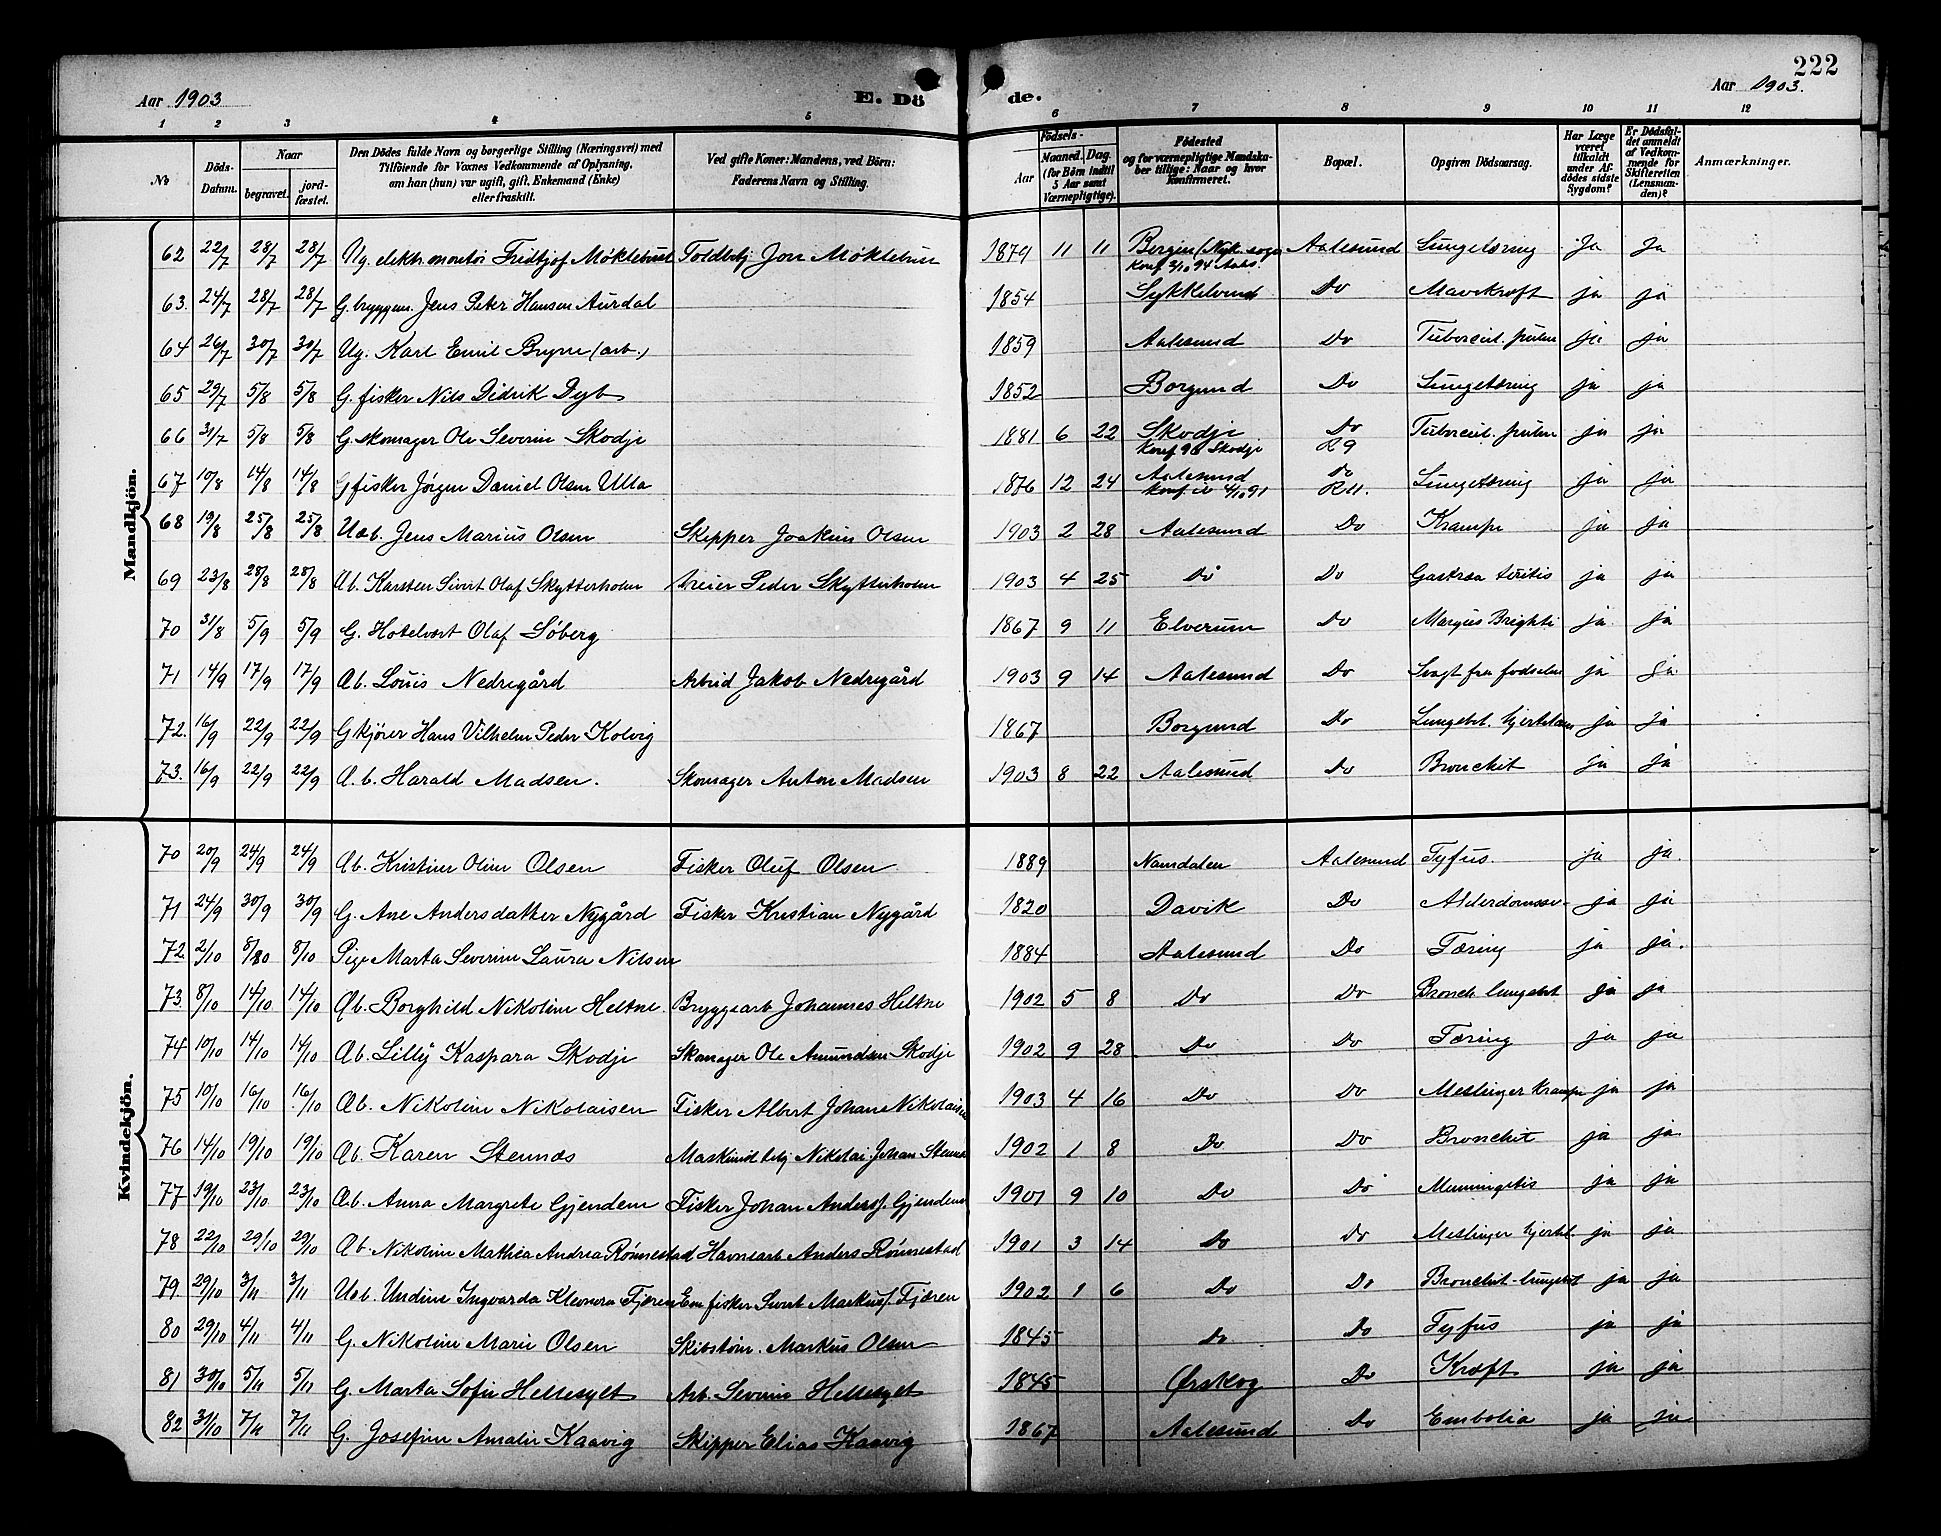 222
Aar 1903
E. Dö
de.
Aar 1903.
1 2 3 4 5 6 7 8 9 10 11 12
№ Döds-Datum. Naar begravet. jord-fæstet. Den Dödes fulde Navn og borgerlige Stilling (Næringsvei) med Tilföiende for Voxnes Vedkommende af Oplysning, om han (hun) var ugift, gift, Enkemand (Enke) eller fraskilt. Ved gifte Koner: Mandens, ved Börn: Faderens Navn og Stilling. Födsels- Aar Maaned. Dag. (for Börn indtil 5 Aar samt Værnepligtige). Födested og for værnepligtige Mandska-ber tillige: Naar og hvor konfirmeret. Bopæl. Opgiven Dödsaarsag. Har Læge været tilkaldt under Af-dödes sidste Sygdom? Er Dödsfal-det anmeldt af Vedkom-mende for Skifteretten (Lensman-den)? Anmærkninger.
Mandkjön.
62 22/7 28/7 28/7 Ug. elektr. montør Fridtjof Møklebust Toldbetj. Jon Møklebust 1879 11 11 Bergen (Nyk. sogn Aalesund Lungetæring Ja Ja
Konf. 2/10 94 Aales.
63. 24/7 28/7 28/7 G. bryggem. Jens Peter Hansen Aurdal 1854 Sykkelven Do Mavekræft ja ja
64 26/7 30/7 30/7 Ug. Karl Emil Bryn (arb.) 1859 Aalesund Do Tubercul. pulm ja ja
65 29/7 5/8 5/8 G. fisker Nils Didrik Dyb 1852 Borgund Do Lungetæring ja ja
66 31/7 5/8 5/8 G. skomager Ole Severin Skodje 1881 6 22 Skodje Do Tubercul. pulm ja ja
Konf 96 Skodje R9
67 10/8 14/8 14/8 G fisker Jørgen Daniel Olsen Ulla 1876 12 24 Aalesund do Lungetæring ja ja
Konf. ib 4/10 91 R11.
68 19/8 25/8 25/8 Uæb. Jens Marius Olsen Skipper Joakim Olsen 1903 2 28 Aalesund Do Krampe ja ja
69 23/8 28/8 28/8 Æb. Karsten Sivert Olaf Skytterholm Meier Peder Skytterholm 1903 4 25 Do Do Gastroa teritis ja ja
70 31/8 5/9 5/9 G. Hotelvært Olaf Søberg 1867 9 11 Elverum Do Morbus Brighti ja ja
71 14/9 17/9 17/9 Æb. Louis Nedregård Arbeid Jakob Nedregård 1903 9 14 Aalesund Do Svagt fra fødselen ja ja
72. 16/9 22/9 22/9 G kjører Hans Vilhelm Peder Kolvig 1867 Borgund Do Lungebet. hjertelam ja ja
73. 16/9 22/9 22/9 Æ.b. Harald Madsen. Skomager Anton Madsen 1903 8 22 Aalesund Do Bronchit ja ja
Kvindekjön.
70 20/9 24/9 24/9 Æb. Kristine Oline Olsen Fisker Oluf Olsen 1889 Namdalen Aalesund Tyfus ja ja.
71 24/9 30/9 30/9 G. Ane Andersdatter Nygård Fisker Kristian Nygård 1820 Davik Do Alderdomssv. ja ja
72 2/10 8/10 8/10 Pige Marta Severine Laura Nilsen 1884 Aalesund Do Tæring ja ja.
73. 8/10 14/10 14/10 Æb. Borghild Nikoline Heltne. Bryggearb Johannes Heltne 1902 5 8 Do Do Bronch lungebet ja ja
74 10/10 14/10 14/10 Æb. Lilly Kaspara Skodje Skomager Ole Amundsen Skodje 1902 9 28 Do Do Tæring ja ja
75 10/10 16/10 16/10 Æb. Nikoline Nikolaisen Fisker Albert Johan Nikolaisen 1903 4 16 Do Do Meslinger Krampe ja ja
76 14/10 19/10 19/10 Æb. Karen Stennæs Maskinist Nikolai Johan Stennæs 1902 1 8 Do Do Bronchit ja ja.
77 19/10 23/10 23/10 Æb. Anna Margrete Gjendem Fisker Johan Anders. Gjendem 1901 9 10 Do Do Meningitis ja ja
78 22/10 29/10 29/10 Æb. Nikoline Mathea Andrea Rønnestad Havnearb Anders Rønnestad 1901 3 14 Do Do Meslinger hjertel. ja ja
79 29/10 3/11 3/11 Uæb. Undine Ingvarda Kleonora Fjøren Em fisker Sivert Markus. Fjøren 1902 1 6 Do Do Bronchit-lungebet ja ja
80 29/10 4/11 4/11 G. Nikoline Marie Olsen Skibstøm. Markus Olsen 1845 Do Do Tyfus ja ja
81 30/10 5/11 5/11 G. Marta Sofie Hellesylt Arb. Severin Hellesylt 1845 Ørskog Do Kræft ja ja
82 31/10 7/11 7/11 G. Josefine Amalie Kaavig Skipper Elias Kaavig 1867 Aalesund Do Embolia ja ja